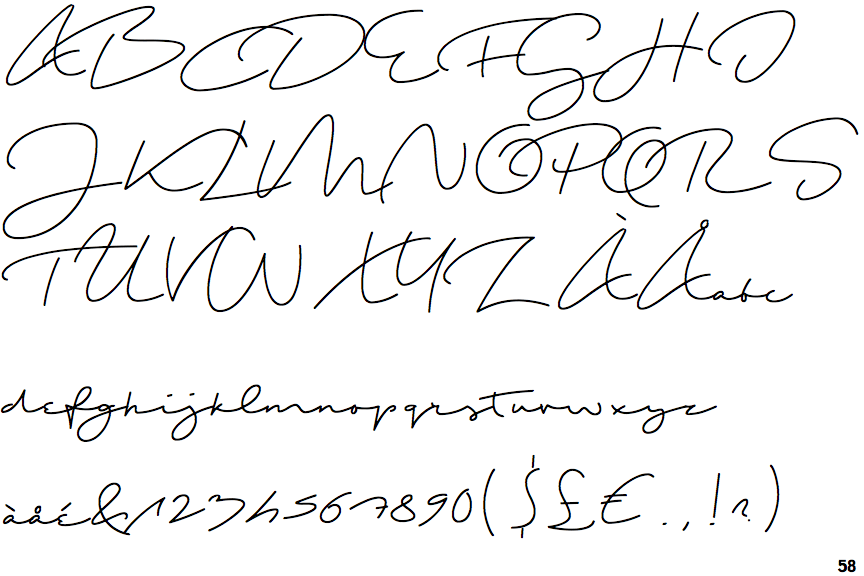 ABCDEFGHI
JKLMNOPQRS
TUVWXYZÀÅabc
defghijklmnopqrstuvwxyz
àåé&1234567890($£€.,!?)
58